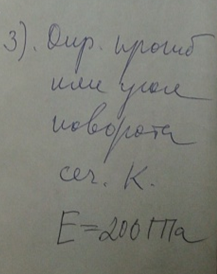 3). Опр. прогиб
или угол
поворота
сеч. К.
E=200 ГПа